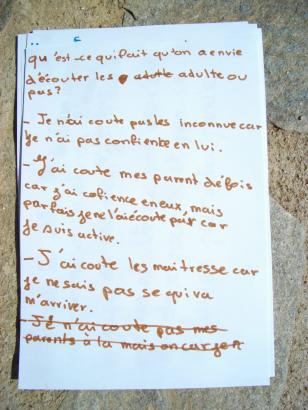 qu'est-ce qui fait qu'on a envie
d'écouter les adulte adulte ou
pas?
- Je n'ai coute pas les inconnue car
Je n'ai pas confience en lui.
- J'ai coute mes parent défois
car j'ai cofience en eux, mais
parfois je ne l'ai écoute pas car
Je suis active.
- J'ai coute les maitresse car
je ne sais pas se qui va
m'arriver.
- Je n'ai coute pas mes
parents à la maison car je n